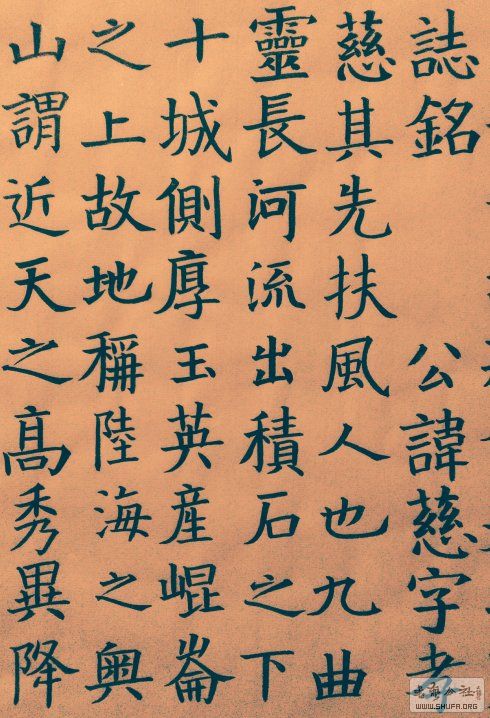 誌銘 公諱慈字
慈其先扶風人也九曲
靈長河流出積石之下
十城側厚玉英産崐崙
之上故地稱陸海之奥
山謂近天之髙秀異降
WWW.SHUFA.ORG